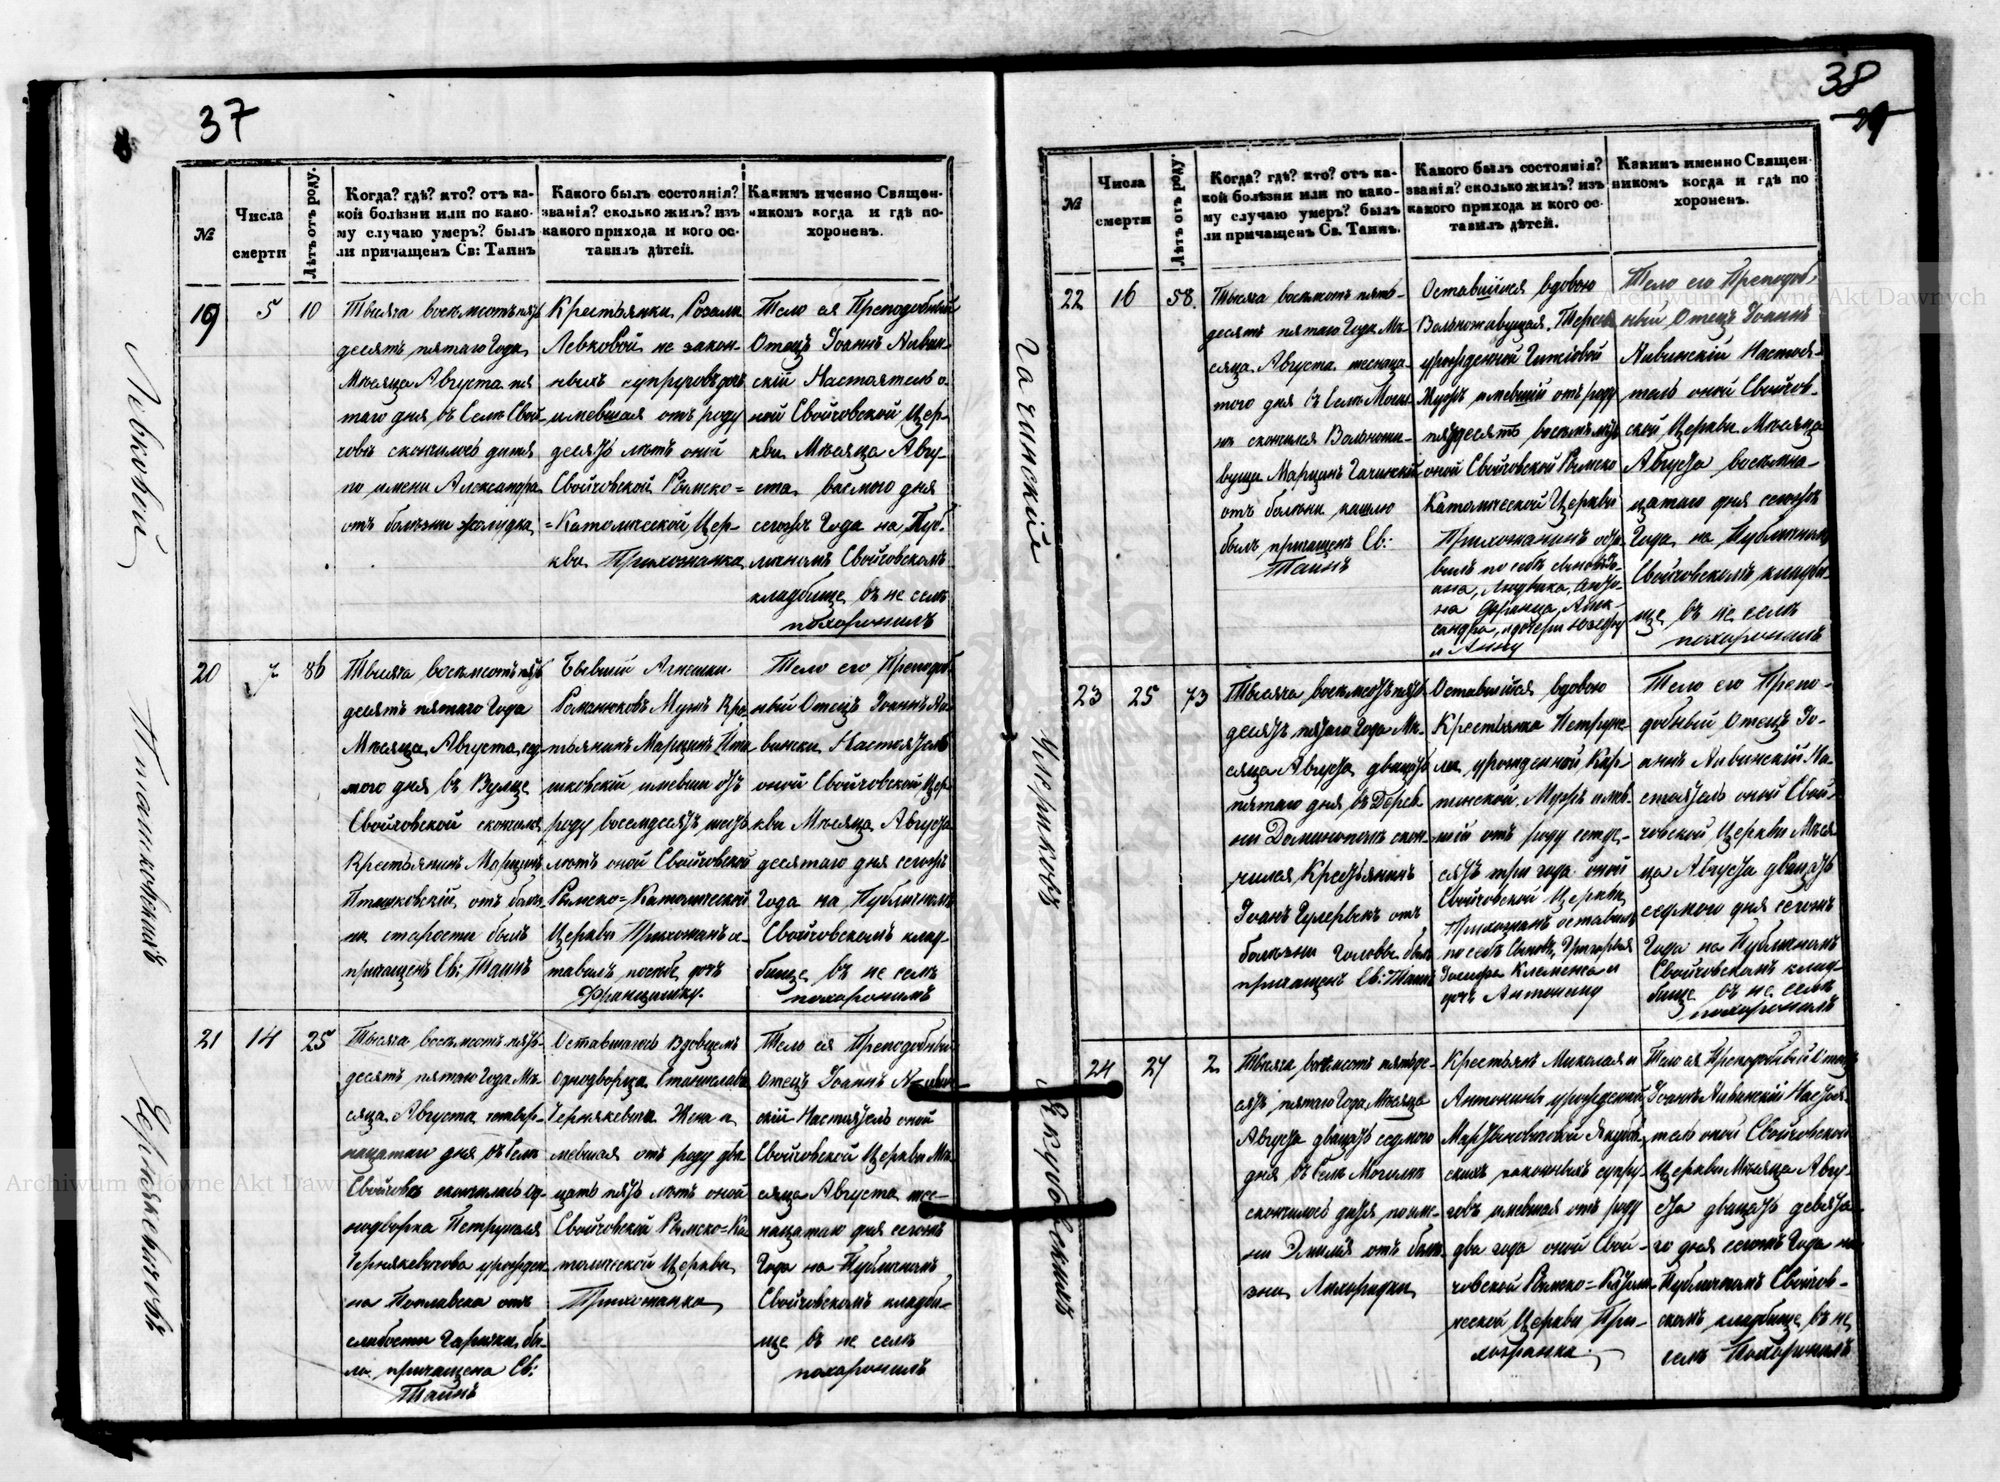 37
№
Числа
смерти
Лѣтъ отъ роду.
Когда? гдѣ? кто? отъ ка-
кой болѣзни или по како-
му случаю умеръ? былъ
ли причащенъ Св: Таинъ
Какого былъ состоянія?
званія? сколько жилъ? изъ
какого прихода и кого ос-
тавилъ дѣтей.
Какимъ именно Священ-
никомъ когда и гдѣ по-
хороненъ.
Левковій
19
5
10
Тысяча восемсотъ пять
десятъ пятаго Года
Мѣсяца Августа пя
таго дня въ Селѣ Свой
човѣ скончалось дитя
по имени Александра
отъ болѣзни желудка
Крестьянки Розали
Левковой не закон-
ныхъ супруговъ дочь
имевшая отъ роду
десять лѣтъ оной
Свойчовской Римско=
=Католической Цер-
кви Прихожанка
Тело ея Преподобный
Отецъ Іоаннъ Нивин-
скій Настоятель о-
ной Свойчовской Цер-
кви Мѣсяца Авгу-
ста восмого дня
сегожъ Года на Пуб-
личномъ Свойчовскомъ
кладбище въ не селѣ
похоронилъ
Пташковскій
20
7
86
Тысяча восемсотъ пять
десятъ пятаго Года
Мѣсяца Августа сед
мого дня въ Вулце
Свойчовской скончался
Крестьянинъ Марцинъ
Пташковскій отъ болѣз-
ни старости былъ
причащенъ Св: Таинъ
Бывшій Агнешки
Романюковъ Мужъ Кре-
тьянинъ Марцинъ Пта
шковскій имевши отъ
роду восемдесятъ шесть
лѣтъ оной Свойчовской
Римско=Католической
Церкви Прихожанъ о-
тавилъ по себе дочь
Францишку.
Тело его Преподоб
ный Отецъ Іоаннъ Ни-
вински Настоятель
оной Свойчовской Цер
кви Мѣсяца Августа
десятаго дня сегожъ
Года на Публичномъ
Свойчовскомъ клад-
бище въ не селѣ
похоронилъ
Чернякевичовъ
21
14
25
Тысяча восемсотъ пять-
десятъ пятаго Года Мѣ-
сяца Августа четвер-
нацатаго дня въ Селѣ
Свойчовѣ скончилась Од-
нодворка Петрунеля
Чернякевичова урожден-
на Поплавска отъ
слабости Горячки бы-
ла причащена Св:
Таинъ
Оставшагось Вдовцемъ
Однодворца Станислава
Чернякевича Жена и
мевшая отъ роду два
цать пять лѣтъ оной
Свойчовской Римско=Ка
толической Церкви
Прихожанка
Тело ея Преподобный
Отецъ Іоаннъ Нивин-
скій Настоятель оной
Свойчовской Церкви Мѣ-
сяца Августа шес-
нацатаго дня сегожъ
Года на Публичномъ
Свойчовскомъ кладби-
ще въ не селѣ
похоронилъ
38
29
№
Числа
смерти
Лѣтъ отъ роду.
Когда? гдѣ? кто? отъ ка-
кой болѣзни или по како-
му случаю умеръ? былъ
ли причащенъ Св. Таинъ.
Какого былъ состоянія?
званія? сколько жилъ? изъ
какого прихода и кого ос-
тавилъ дѣтей.
Какимъ именно Священ-
никомъ когда и гдѣ по
хороненъ.
Гачинскій
22
16
58
Тысяча восемсотъ пять-
десятъ пятаго Года Мѣ-
сяца Августа шеснаца-
того дня въ Селѣ Могил-
нѣ скончался Вольножи-
вущи Марцинъ Гачинскій
отъ болѣзни кашлю
былъ причащенъ Св:
Таинъ
Оставшійся вдовою
Вольножавущая
урожденной
Мужъ имевшій отъ роду
пядесятъ восемъ лѣтъ
оной Свойчовской Римско
Католической Церкви
Прихожанинъ оста
вилъ по себѣ сыновъ
Людвика, Анто-
на Франца, Алек-
сандра, и дочери Юзефу
и Анну
Тело его Преподоб-
ный Отецъ Іоаннъ
Нивинскій Настоя-
тель оной Свойчов-
ской Церкви Мѣсяца
Августа восемна-
цатаго дня сегожъ
Года на Публичномъ
Свойчовскомъ кладби-
ще въ не селѣ
похоронилъ
23
25
73
Тысяча восемсотъ пять
десятъ пятаго Года Мѣ-
сяца Августа двацать
пятаго дня въ Дерев-
ни Доминополь скон-
чился Крестьянинъ
Іоанъ отъ
болѣзни Головы былъ
причащенъ Св: Таинъ
Оставшаяся вдовою
Крестьянка Петруне-
ли урожденной
Мужъ имѣ-
шій отъ роду семде-
сятъ три года оной
Свойчовской Церкви
Прихожанъ оставилъ
по себѣ Сыновъ, Григорья
Іосифа Клеменса и
дочь Антонину
Тело его Препо-
добный Отецъ Іо-
аннъ Нивинскій На-
стоятель оной Свой-
човской Церкви Мѣся
ца Августа двацать
седмого дня сегожъ
Года на Публичномъ
Свойчовскомъ клад-
бище въ не селѣ
похоронилъ
Якубовскихъ
24
27
2
Тысяча восемсотъ пятьде-
сятъ пятаго Года Мѣсяца
Августа двацать седмого
дня въ Селѣ Могилнѣ
скончилось дитя по име-
ни Эмилія отъ болѣ
зни Лихорадки
Крестьянъ Миколая и
Антонины урожденной
Мартыновичовой Якубов-
скихъ законныхъ супру-
говъ имевшая отъ роду
два года оной Свой-
човской Римско=Католи
ческой Церкви При-
хожанка.
Тело ея Преподобный Отецъ
Іоаннъ Нивинскій Настоя-
тель оной Свойчовской
Церкви Мѣсяца Авгу-
ста двацать девята-
го дня сегожъ Года на
Публичномъ Свойчов-
скомъ кладбище въ не
селѣ Похоронилъ
Archiwum Główne Akt Dawnych
Archiwum Główne Akt Dawnych